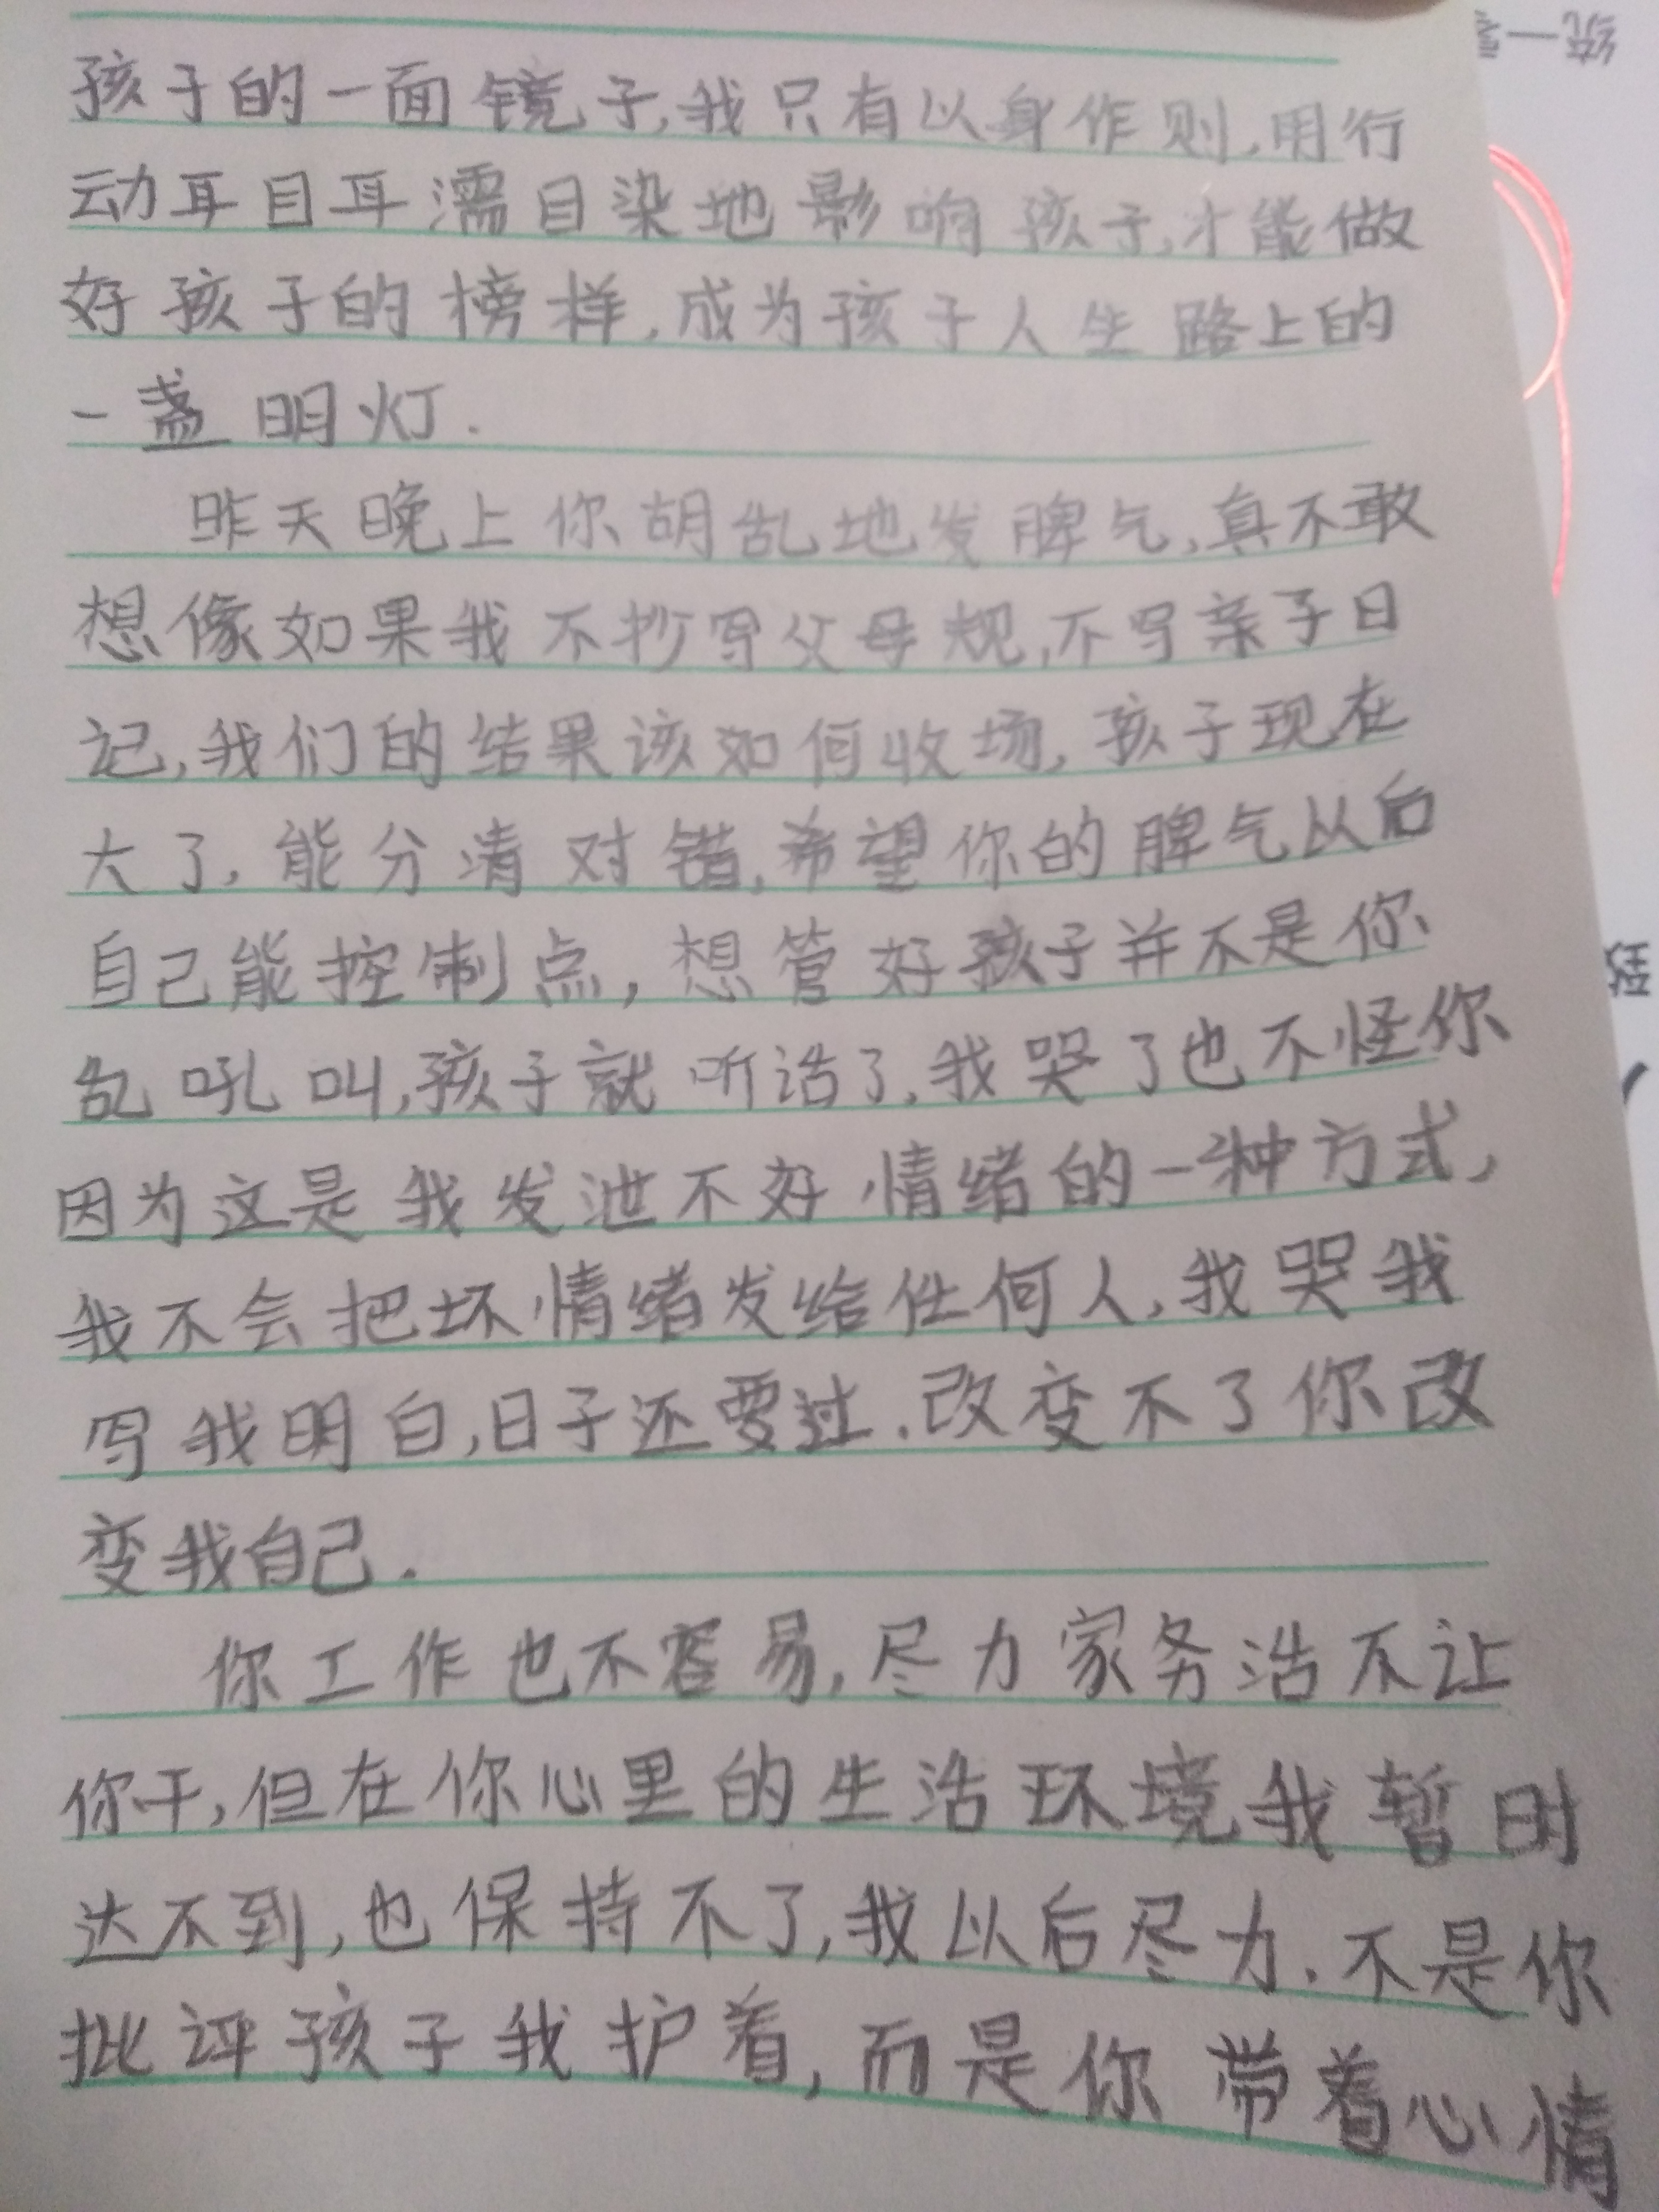 孩子的一面镜子,我只有以身作则,用行
动耳目耳濡目染地影响孩子,才能做
好孩子的榜样,成为孩子人生路上的
一盏明灯.
昨天晚上你胡乱地发脾气,真不敢
想像如果我不抄写父母规,不写亲子日
记,我们的结果该如何收场,孩子现在
大了,能分清对错,希望你的脾气以后
自己能控制点,想管好孩子并不是你
乱吼叫,孩子就听话了,我哭了也不怪你
因为这是我发泄不好情绪的一种方式,
我不会把坏情绪发给任何人,我哭我
写我明白,日子还要过.改变不了你改
变我自己.
你工作也不容易,尽力家务活不让
你干,但在你心里的生活环境我暂时
达不到,也保持不了,我以后尽力.不是你
批评孩子我护着,而是你带着心情
统一